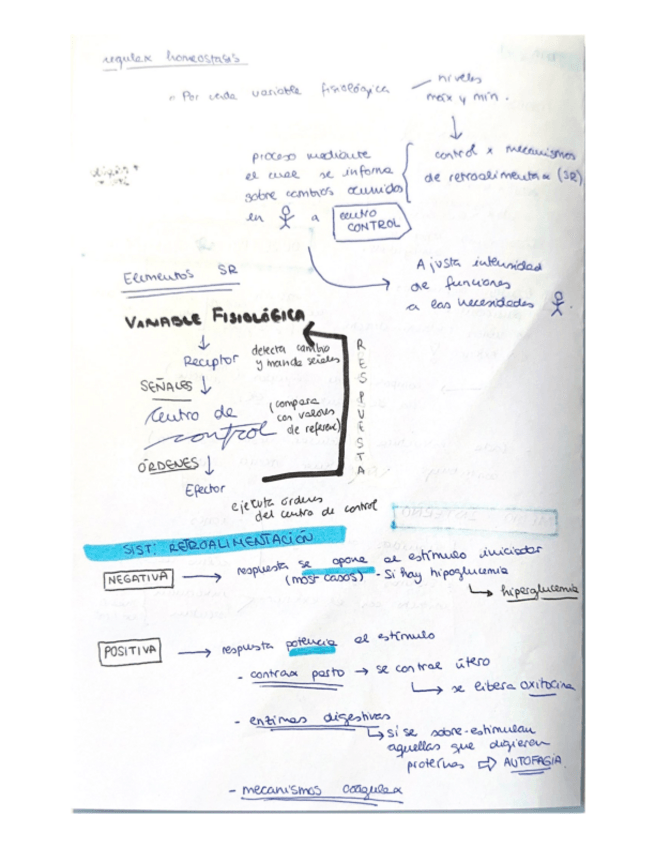 regular homeostasis
- Por cada variable fisiológica
niveles
max y min.
control x mecanismos
de retroalimentac (SR)
proceso mediante
el cual se informa
sobre cambios ocurridos
en a centro
CONTROL
Ajusta intensidad
de funciones
a las necesidades
Elementos SR
VARIABLE FISIOLÓGICA
Receptor
detecta cambio
y manda señales
SEÑALES
Centro de
control
(compara
con valores
de referenc)
RESPUESTA
ÓRDENES
Efector
ejecuta órdenes
del centro de control
SIST: RETROALIMENTACIÓN
NEGATIVA
respuesta se opone al estímulo iniciador
(most casos) - Si hay hipoglucemia
hiperglucemia
POSITIVA
respuesta potencia el estímulo
- contrax parto → se contrae útero
se libera oxitocina
- enzimas digestivas
si se sobre-estimulan
aquellas que digieren
proteínas ⇨ AUTOFAGIA
- mecanismos coagulax